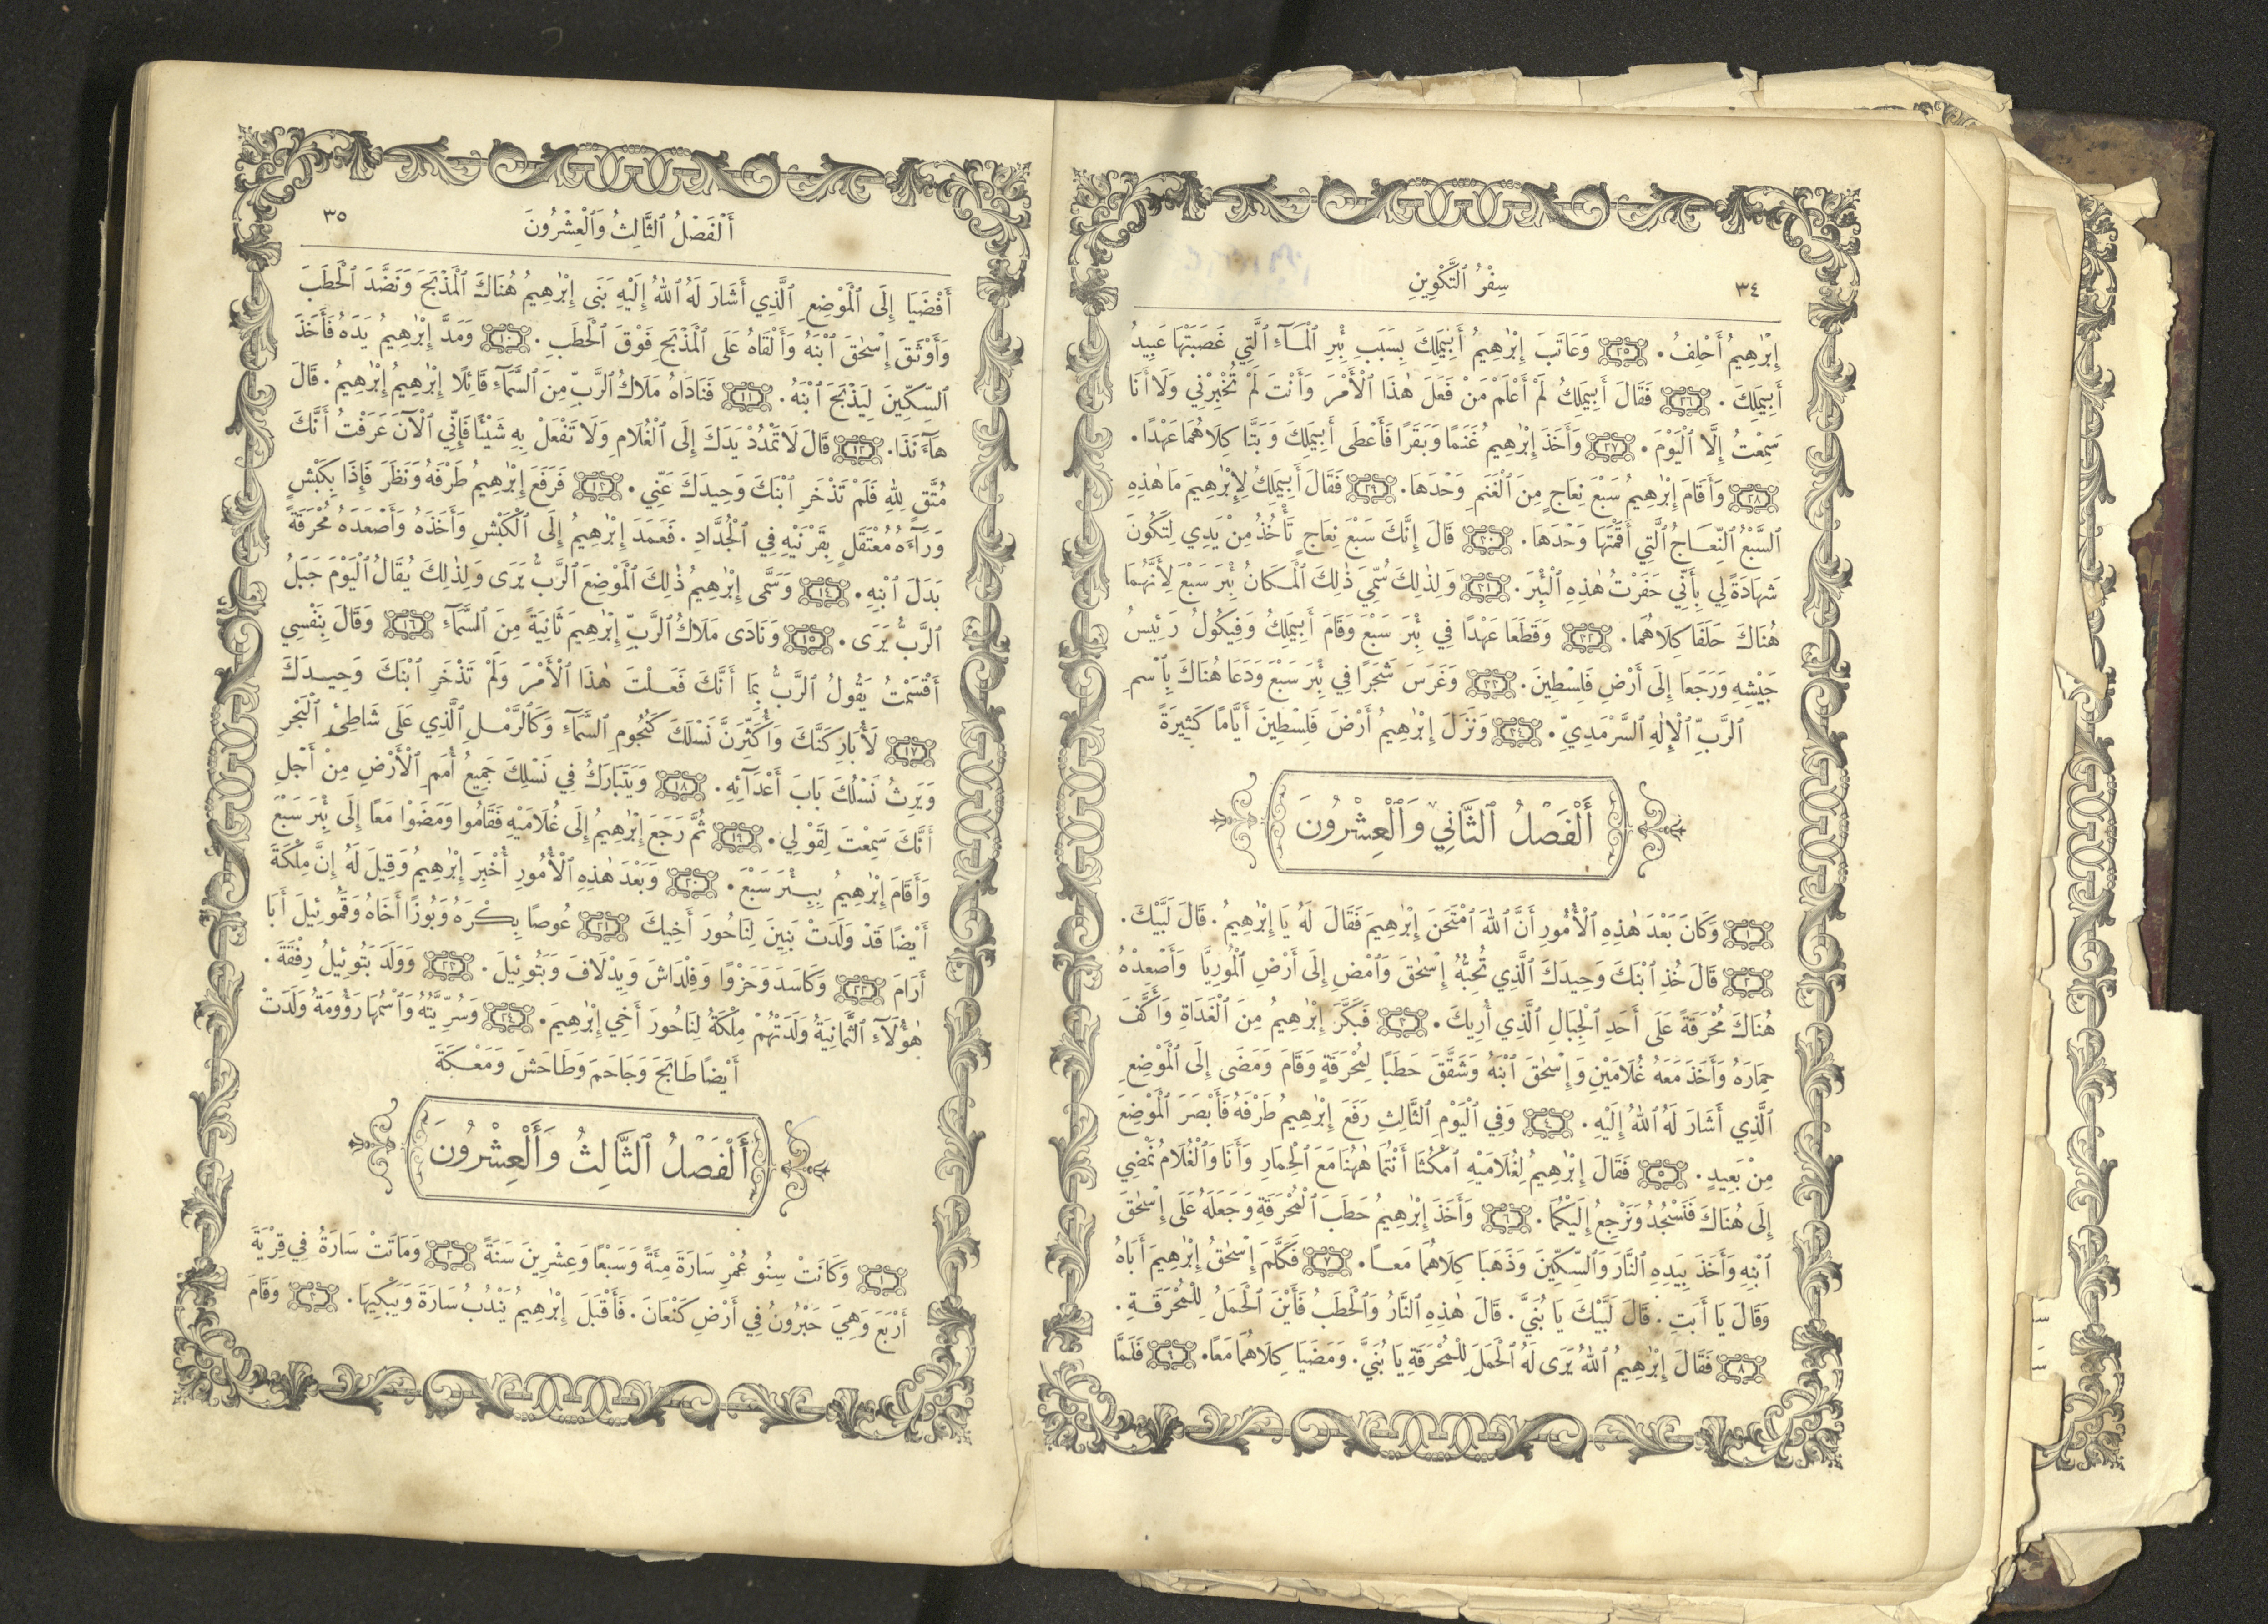 ٣٤
سِفْرُ ٱلتَّكْوِينِ
إِبْرٰهِيمُ أَحْلِفُ. ٢٥ وَعَاتَبَ إِبْرٰهِيمُ أَبِيمَلِكَ بِسَبَبِ بِئْرِ ٱلْمَـآءِ ٱلَّتِي غَصَبَتْهَا عَبِيدُ
أَبِيمَلِكَ. ٢٦ فَقَالَ أَبِيمَلِكُ لَمْ أَعْلَمْ مَنْ فَعَلَ هٰذَا ٱلْأَمْرَ وَأَنْتَ لَمْ تُخْبِرْنِي وَلَا أَنَا
سَمِعْتُ إِلَّا ٱلْيَوْمَ. ٢٧ وَأَخَذَ إِبْرٰهِيمُ غَنَمًا وَبَقَرًا فَأَعْطَى أَبِيمَلِكَ وَبَتَّا كِلَاهُمَا عَهْدًا.
٢٨ وَأَقَامَ إِبْرٰهِيمُ سَبْعَ نِعَاجٍ مِنَ ٱلْغَنَمِ وَحْدَهَا. ٢٩ فَقَالَ أَبِيمَلِكُ لِإِبْرٰهِيمَ مَا هٰذِهِ
ٱلسَّبْعُ ٱلنِّعَـاجُ ٱلَّتِي أَقَمْتَهَا وَحْدَهَا. ٣٠ قَالَ إِنَّكَ سَبْعَ نِعَاجٍ تَأْخُذُ مِنْ يَدِي لِتَكُونَ
شَهَادَةً لِي بِأَنِّي حَفَرْتُ هٰذِهِ ٱلْبِئْرَ. ٣١ وَلِذٰلِكَ سُمِّيَ ذٰلِكَ ٱلْمَكَانُ بِئْرَ سَبْعَ لِأَنَّهُمَا
هُنَاكَ حَلَفَا كِلَاهُمَا. ٣٢ وَقَطَعَا عَهْدًا فِي بِئْرَ سَبْعَ وَقَامَ أَبِيمَلِكُ وَفِيكُولُ رَئِيسُ
جَيْشِهِ وَرَجَعَا إِلَى أَرْضِ فَلِسْطِينَ. ٣٣ وَغَرَسَ شَجَرًا فِي بِئْرَ سَبْعَ وَدَعَا هُنَاكَ بِٱسْمِ
ٱلرَّبِّ ٱلْإِلٰهِ ٱلسَّرْمَدِيِّ. ٣٤ وَنَزَلَ إِبْرٰهِيمُ أَرْضَ فَلِسْطِينَ أَيَّامًا كَثِيرَةً
أَلْفَصْلُ ٱلثَّانِي وَٱلْعِشْرُونَ
١ وَكَانَ بَعْدَ هٰذِهِ ٱلْأُمُورِ أَنَّ ٱللهَ ٱمْتَحَنَ إِبْرٰهِيمَ فَقَالَ لَهُ يَا إِبْرٰهِيمُ. قَالَ لَبَّيْكَ.
٢ قَالَ خُذِ ٱبْنَكَ وَحِيدَكَ ٱلَّذِي تُحِبُّهُ إِسْحٰقَ وَٱمْضِ إِلَى أَرْضِ ٱلْمُورِيَّا وَأَصْعِدْهُ
هُنَاكَ مُحْرَقَةً عَلَى أَحَدِ ٱلْجِبَالِ ٱلَّذِي أُرِيكَ. ٣ فَبَكَّرَ إِبْرٰهِيمُ مِنَ ٱلْغَدَاةِ وَأَكَّفَ
حِمَارَهُ وَأَخَذَ مَعَهُ غُلَامَيْنِ وَإِسْحٰقَ ٱبْنَهُ وَشَقَّقَ حَطَبًا لِمُحْرَقَةٍ وَقَامَ وَمَضَى إِلَى ٱلْمَوْضِعِ
ٱلَّذِي أَشَارَ لَهُ ٱللهُ إِلَيْهِ. ٤ وَفِي ٱلْيَوْمِ ٱلثَّالِثِ رَفَعَ إِبْرٰهِيمُ طَرْفَهُ فَأَبْصَرَ ٱلْمَوْضِعَ
مِنْ بَعِيدٍ. ٥ فَقَالَ إِبْرٰهِيمُ لِغُلَامَيْهِ ٱمْكُثَا أَنْتُمَا هٰهُنَا مَعَ ٱلْحِمَارِ وَأَنَا وَٱلْغُلَامُ نَمْضِي
إِلَى هُنَاكَ فَنَسْجُدُ وَنَرْجِعُ إِلَيْكُمَا. ٦ وَأَخَذَ إِبْرٰهِيمُ حَطَبَ ٱلْمُحْرَقَةِ وَجَعَلَهُ عَلَى إِسْحٰقَ
ٱبْنِهِ وَأَخَذَ بِيَدِهِ ٱلنَّارَ وَٱلسِّكِّينَ وَذَهَبَا كِلَاهُمَا مَعًا. ٧ فَكَلَّمَ إِسْحٰقُ إِبْرٰهِيمَ أَبَاهُ
وَقَالَ يَا أَبَتِ. قَالَ لَبَّيْكَ يَا بُنَيَّ. قَالَ هٰذِهِ ٱلنَّارُ وَٱلْحَطَبُ فَأَيْنَ ٱلْحَمَلُ لِلْمُحْرَقَـةِ.
٨ فَقَالَ إِبْرٰهِيمُ ٱللهُ يَرَى لَهُ ٱلْحَمَلَ لِلْمُحْرَقَةِ يَا بُنَيَّ. وَمَضَيَا كِلَاهُمَا مَعًا. ٩ فَلَمَّا
أَلْفَصْلُ ٱلثَّالِثُ وَٱلْعِشْرُونَ
٣٥
أَفْضَيَا إِلَى ٱلْمَوْضِعِ ٱلَّذِي أَشَارَ لَهُ ٱللهُ إِلَيْهِ بَنَى إِبْرٰهِيمُ هُنَاكَ ٱلْمَذْبَحَ وَنَضَّدَ ٱلْحَطَبَ
وَأَوْثَقَ إِسْحٰقَ ٱبْنَهُ وَأَلْقَاهُ عَلَى ٱلْمَذْبَحِ فَوْقَ ٱلْحَطَبِ. ١٠ وَمَدَّ إِبْرٰهِيمُ يَدَهُ فَأَخَذَ
ٱلسِّكِّينَ لِيَذْبَحَ ٱبْنَهُ. ١١ فَنَادَاهُ مَلَاكُ ٱلرَّبِّ مِنَ ٱلسَّمَآءِ قَائِلًا إِبْرٰهِيمُ إِبْرٰهِيمُ. قَالَ
هَآءَنَذَا. ١٢ قَالَ لَا تَمْدُدْ يَدَكَ إِلَى ٱلْغُلَامِ وَلَا تَفْعَلْ بِهِ شَيْئًا فَإِنِّي ٱلْآنَ عَرَفْتُ أَنَّكَ
مُتَّقٍ لِلهِ فَلَمْ تَذْخَرِ ٱبْنَكَ وَحِيدَكَ عَنِّي. ١٣ فَرَفَعَ إِبْرٰهِيمُ طَرْفَهُ وَنَظَرَ فَإِذَا بِكَبْشٍ
وَرَآءَهُ مُعْتَقَلٍ بِقَرْنَيْهِ فِي ٱلْجُدَّادِ. فَعَمَدَ إِبْرٰهِيمُ إِلَى ٱلْكَبْشِ وَأَخَذَهُ وَأَصْعَدَهُ مُحْرَقَةً
بَدَلَ ٱبْنِهِ. ١٤ وَسَمَّى إِبْرٰهِيمُ ذٰلِكَ ٱلْمَوْضِعَ ٱلرَّبُّ يَرَى وَلِذٰلِكَ يُقَالُ ٱلْيَوْمَ جَبَلُ
ٱلرَّبُّ يَرَى. ١٥ وَنَادَى مَلَاكُ ٱلرَّبِّ إِبْرٰهِيمَ ثَانِيَةً مِنَ ٱلسَّمَآءِ ١٦ وَقَالَ بِنَفْسِي
أَقْسَمْتُ يَقُولُ ٱلرَّبُّ بِمَا أَنَّكَ فَعَـلْتَ هٰذَا ٱلْأَمْرَ وَلَمْ تَذْخَرِ ٱبْنَكَ وَحِيـدَكَ
١٧ لَأُبَارِكَنَّكَ وَأُكَثِّرَنَّ نَسْلَكَ كَنُجُومِ ٱلسَّمَآءِ وَكَٱلرَّمْـلِ ٱلَّذِي عَلَى شَاطِئِ ٱلْبَحْرِ
وَيَرِثُ نَسْلُكَ بَابَ أَعْدَآئِهِ. ١٨ وَيَتَبَارَكُ فِي نَسْلِكَ جَمِيعُ أُمَمِ ٱلْأَرْضِ مِنْ أَجْلِ
أَنَّكَ سَمِعْتَ لِقَوْلِي. ١٩ ثُمَّ رَجَعَ إِبْرٰهِيمُ إِلَى غُلَامَيْهِ فَقَامُوا وَمَضَوْا مَعًا إِلَى بِئْرَ سَبْعَ
وَأَقَامَ إِبْرٰهِيمُ بِبِـئْرَ سَبْعَ. ٢٠ وَبَعْدَ هٰذِهِ ٱلْأُمُورِ أُخْبِرَ إِبْرٰهِيمُ وَقِيلَ لَهُ إِنَّ مِلْكَةَ
أَيْضًا قَدْ وَلَدَتْ بَنِينَ لِنَاحُورَ أَخِيكَ ٢١ عُوصًا بِكْرَهُ وَبُوزًا أَخَاهُ وَقَمُوئِيلَ أَبَا
أَرَامَ ٢٢ وَكَاسَدَ وَحَزْوًا وَفِلْدَاشَ وَيِدْلَافَ وَبَتُوئِيلَ. ٢٣ وَوَلَدَ بَتُوئِيلُ رِفْقَةَ.
هٰؤُلَآءِ ٱلثَّمَانِيَةُ وَلَدَتْهُمْ مِلْكَةُ لِنَاحُورَ أَخِي إِبْرٰهِيمَ. ٢٤ وَسُرِّيَّتُهُ وَٱسْمُهَا رَؤُومَةُ وَلَدَتْ
أَيْضًا طَابَحَ وَجَاحَمَ وَطَاحَشَ وَمَعْـكَةَ
أَلْفَصْلُ ٱلثَّالِثُ وَٱلْعِشْرُونَ
١ وَكَانَتْ سِنُو عُمْرِ سَارَةَ مِئَةً وَسَبْعًا وَعِشْرِينَ سَنَةً ٢ وَمَاتَتْ سَارَةُ فِي قِرْيَةَ
أَرْبَعَ وَهِيَ حَبْرُونُ فِي أَرْضِ كَنْعَانَ. فَأَقْبَلَ إِبْرٰهِيمُ يَنْدُبُ سَارَةَ وَيَبْكِيهَا. ٣ وَقَامَ